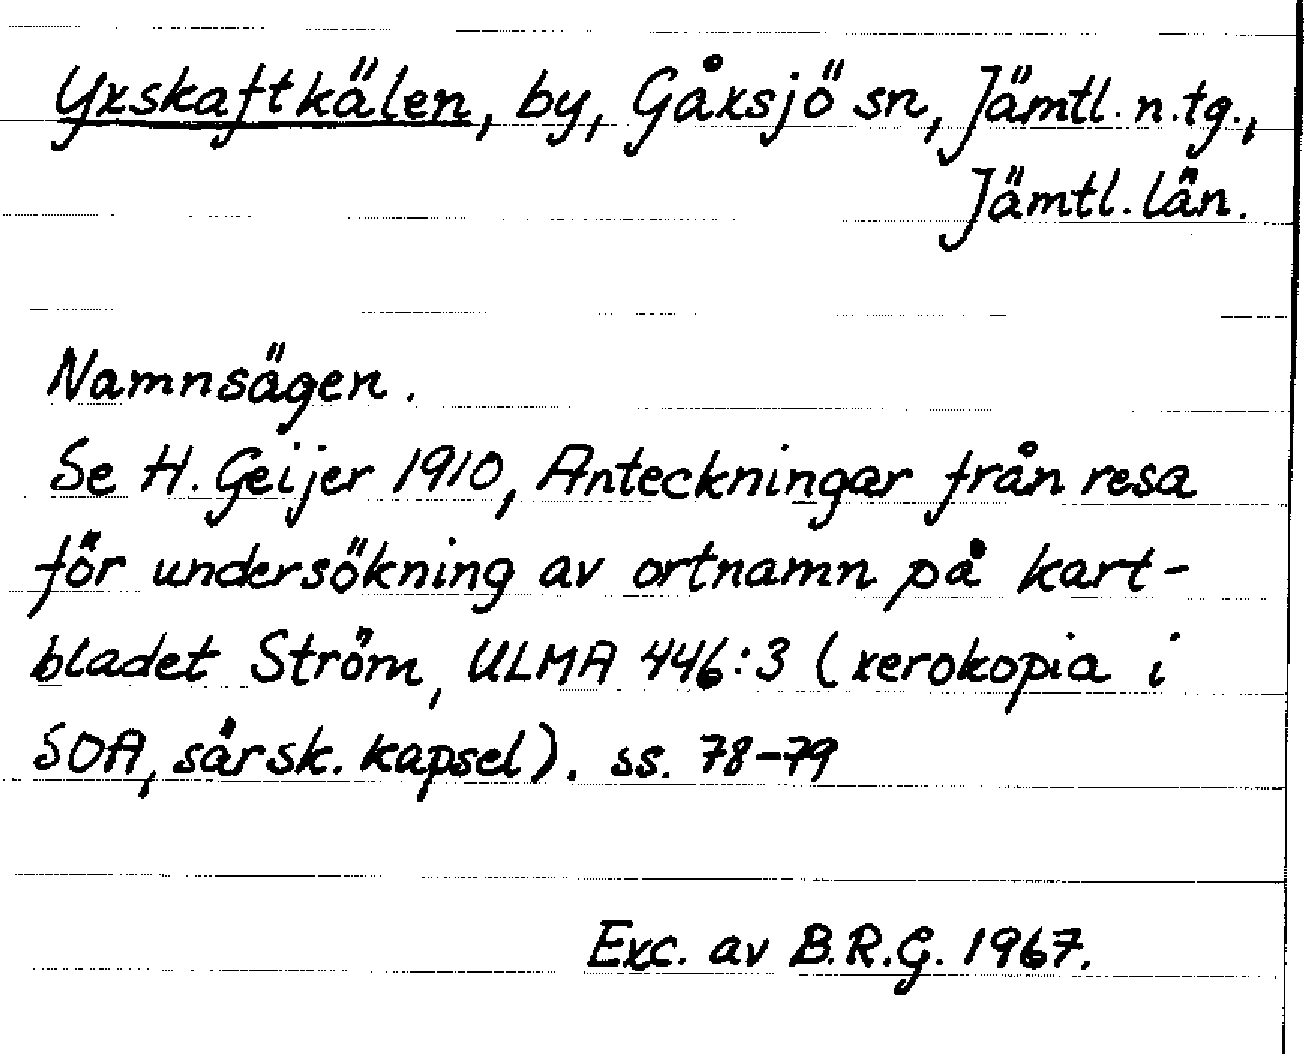 Yxskaftkälen, by, Gåxsjö sn, Jämtl. n. tg.,
Jämtl. län.
Namnsägen.
Se H. Geijer 1910, Anteckningar från resa
för undersökning av ortnamn på kart-
bladet Ström, ULMA 446:3 (xerokopia i
SOA, särsk. kapsel). ss. 78-79
Exc. av B.R.G. 1967.